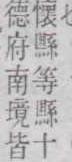 懷縣等縣十
德府南境皆